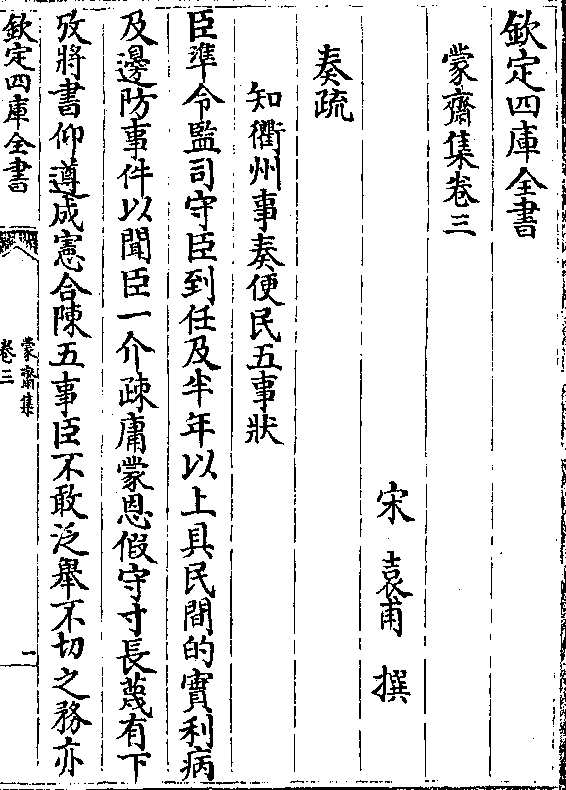 欽定四庫全書
蒙齋集卷三
宋 袁甫 撰
奏疏
知衢州事奏便民五事狀
臣準令監司守臣到任及半年以上具民間的實利病
及邊防事件以聞臣一介踈庸蒙恩假守寸長蔑有下
攷將書仰遵成憲合陳五事臣不敢泛舉不切之務亦
欽定四庫全書
蒙齋集
卷三
一